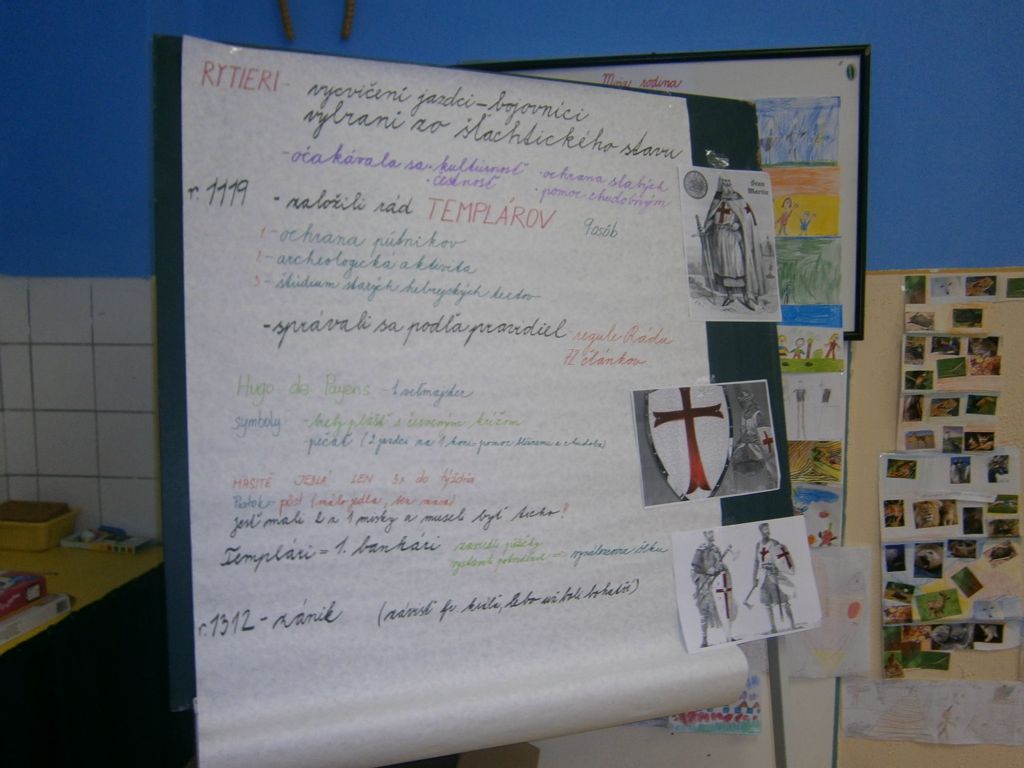 Moja rodina
RYTIERI - vycvičení jazdci - bojovníci
vybraní zo šľachtického stavu
- očakávala sa · kultúrnosť · ochrana slabých
· čestnosť · pomoc chudobným
r. 1119 - založili rád TEMPLÁROV 9 osôb
1 - ochrana pútnikov
2 - archeologická aktivita
3 - štúdium starých hebrejských textov
- správali sa podľa pravidiel - regule Rádu
72 článkov
Hugo de Payens - 1. veľmajster
symboly - biely plášť s červeným krížom
- pečať (2 jazdci na 1 koni - pomoc blížnemu a chudoba)
MASITÉ JEDLÁ LEN 3x do týždňa
Piatok - pôst (málo jedla, bez mäsa)
jesť mali 2 z 1 misky a museli byť ticho!
Templári = 1. bankári zaviedli pôžičky
vystavili potvrdenie = vynálezcovia šeku
r. 1312 - zánik (závisť fr. kráľa, lebo už boli bohatší)